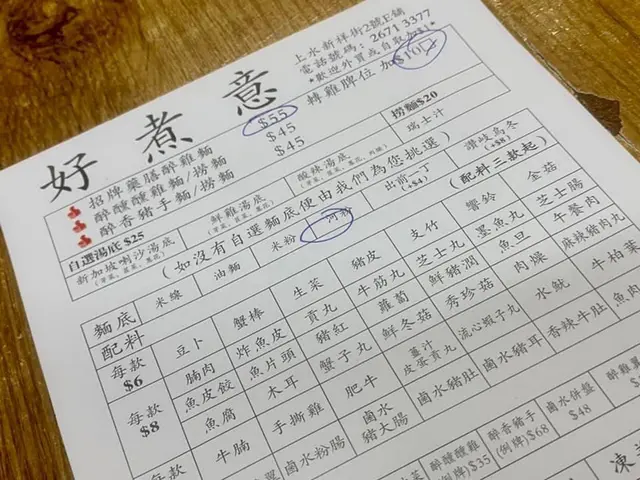 好煮意
上水新祥街2號E舖
電話號碼：2671 3377
*歡迎外買或自取加1*
轉雞髀位 加$10
招牌藥膳醉雞麵 $55
醉醺醺雞麵/撈麵 $45
醉香豬手麵/撈麵 $45
自選湯底 $25
鮮雞湯底
酸辣湯底
撈麵$20
瑞士汁
新加坡喇沙湯底
(如沒有自選麵底便由我們為您挑選)
(配料三款起)
麵底
米線
油麵
米粉
河粉
出前一丁
(+$4)
讚岐烏冬
(+$8)
配料
每款
$6
豆卜
蟹棒
生菜
豬皮
支竹
響鈴
金菇
腩肉
炸魚皮
貢丸
牛筋丸
芝士丸
墨魚丸
芝士腸
魚皮餃
魚片頭
豬紅
蘿蔔
鮮豬潤
魚旦
午餐肉
每款
$8
魚腐
木耳
蟹子丸
鮮冬菇
秀珍菇
肉燥
麻辣豬肉丸
牛腩
手撕雞
肥牛
薑汁
皮蛋貢丸
流心蝦子丸
水魷
牛柏葉
每款
鹵水粉腸
鹵水
豬大腸
鹵水豬肚
鹵水豬耳
香辣牛肚
魚肉
醉醺醺雞
(例牌)$35
醉香豬手
(例牌)$68
鹵水併盤
$48